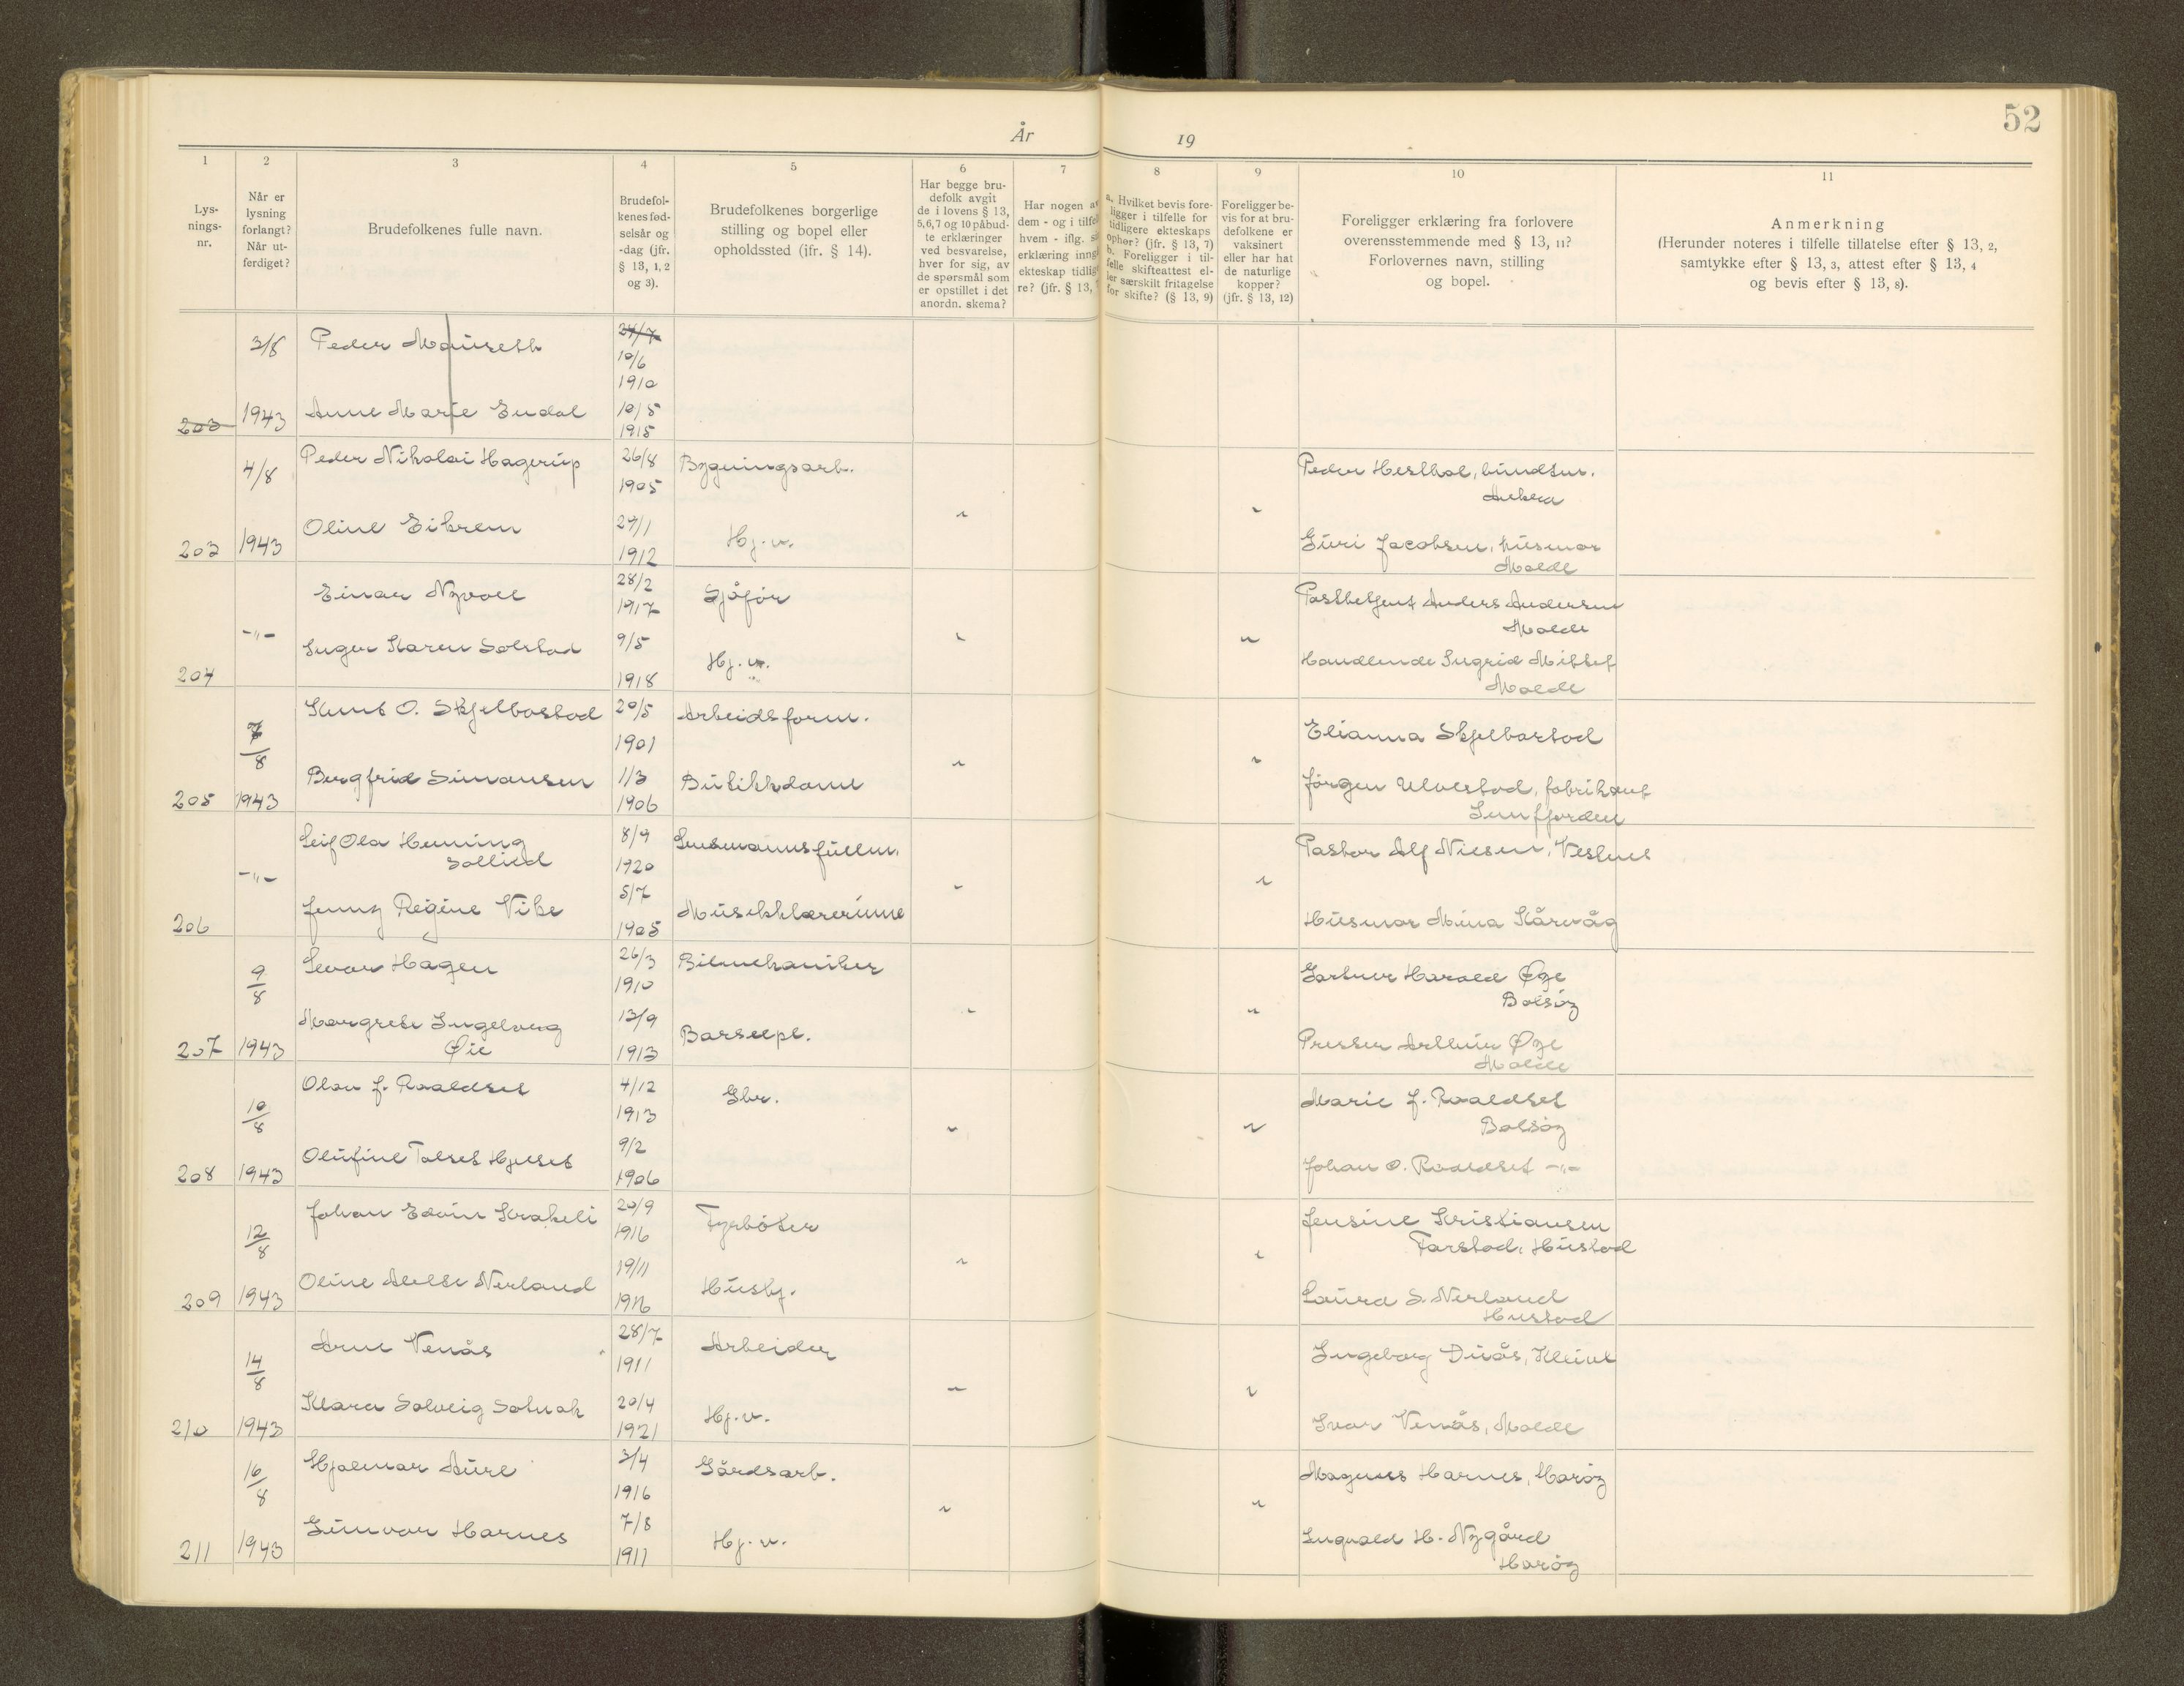 52
År 19
1 2 3 4 5 6 7 8 9 10 11
Lys-
nings-
nr.
Når er
lysning
forlangt?
Når ut-
ferdiget?
Brudefolkenes fulle navn.
Brudefol-
kenes fød-
selsår og
-dag (jfr.
§ 13, 1, 2
og 3).
Brudefolkenes borgerlige
stilling og bopel eller
opholdssted (ifr. § 14).
Har begge bru-
defolk avgit
de i lovens § 13,
5,6,7 og 10 påbud-
te erklæringer
ved besvarelse,
hver for sig, av
de spørsmål som
er opstillet i det
anordn. skema?
Har nogen a
dem - og i tilfe
hvem - iflg. s
erklæring inng
ekteskap tidlig
re? (jfr. § 13,
a. Hvilket bevis fore-
ligger i tilfelle for
tidligere ekteskaps
ophør? (jfr. § 13, 7)
b. Foreligger i til-
felle skifteattest el-
ler særskilt fritagelse
for skifte? (§ 13, 9)
Foreligger be-
vis for at bru-
defolkene er
vaksinert
eller har hat
de naturlige
kopper?
(jfr. § 13, 12)
Foreligger erklæring fra forlovere
overensstemmende med § 13, 11?
Forlovernes navn, stilling
og bopel.
Anmerkning
(Herunder noteres i tilfelle tillatelse efter § 13, 2,
samtykke efter § 13, 3, attest efter § 13, 4
og bevis efter § 13, 8).
3/8 Peder Mauseth 24/7
10/6
1910
203 1943 Anne Marie Endal 10/5
1915
4/8 Peder Nikolai Hagerup 26/8 Bygningsarb. Peder Hesthol,
1905 Aukra
Oline Eikrem 27/1 Hj.v. Guri Jacobsen, husmor
203 1943 1912 Molde
Einar Nyvoll 28/2 Sjåfør Postbetjent Anders Andersen
1917 Molde
-"- Inger Karen Solstad 9/5 Hj.v. Handlende Ingrid Mittet
204 1918 Molde
7/8 Knut O. Skjelbostad 20/5 Arbeidsform. Elianna Skjelbostad
1901
Bergfrid Simonsen 1/3 Butikkdame Jørgen Ulvestad, fabrikant
205 1943 1906
Leif Ola Henning 8/9 Lensmannsfullm. Pastor Alf Niesen, Vestnes
Sollied 1920
-"- 5/7
Jenny Regine Vike Musikklærerinne Husmor Mina Kårvåg
206 1905
9/8 Ivar Hagen 26/3 Bilmekaniker Gartner Harald Øye
1910 Bolsøy
Margrete Ingeborg 13/9 Barselpl. Presser Arthur Øye
207 1943 Øie 1913 Molde
10/8 Olav J. Roaldset 4/12 Gbr. Marie J. Roaldset
1913 Bolsøy
Olufine Tolset Hjelset 9/2 Johan O. Roaldset -"-
208 1943 1906
12/8 Johan Edvin Krakeli 20/9 Fyrbøter Jensine Kristiansen
1916 Farstad, Hustad
Oline Nerland 19/11 Hushj. Laura S. Nerland
209 1943 1916 Hustad
14/8 Arne Venås 28/7 Arbeider Ingeborg Duås, Kleive
1911
Klara Solveig Solnak 20/4 Hj.v. Ivar Venås, Molde
210 1943 1921
16/8 Hjalmar Aure 3/4 Gårdsarb. Magnus Harnes, Harøy
1916
Gunvor Harnes 7/8 Hj.v. Ingvald H. Nygård
211 1943 1911 Harøy